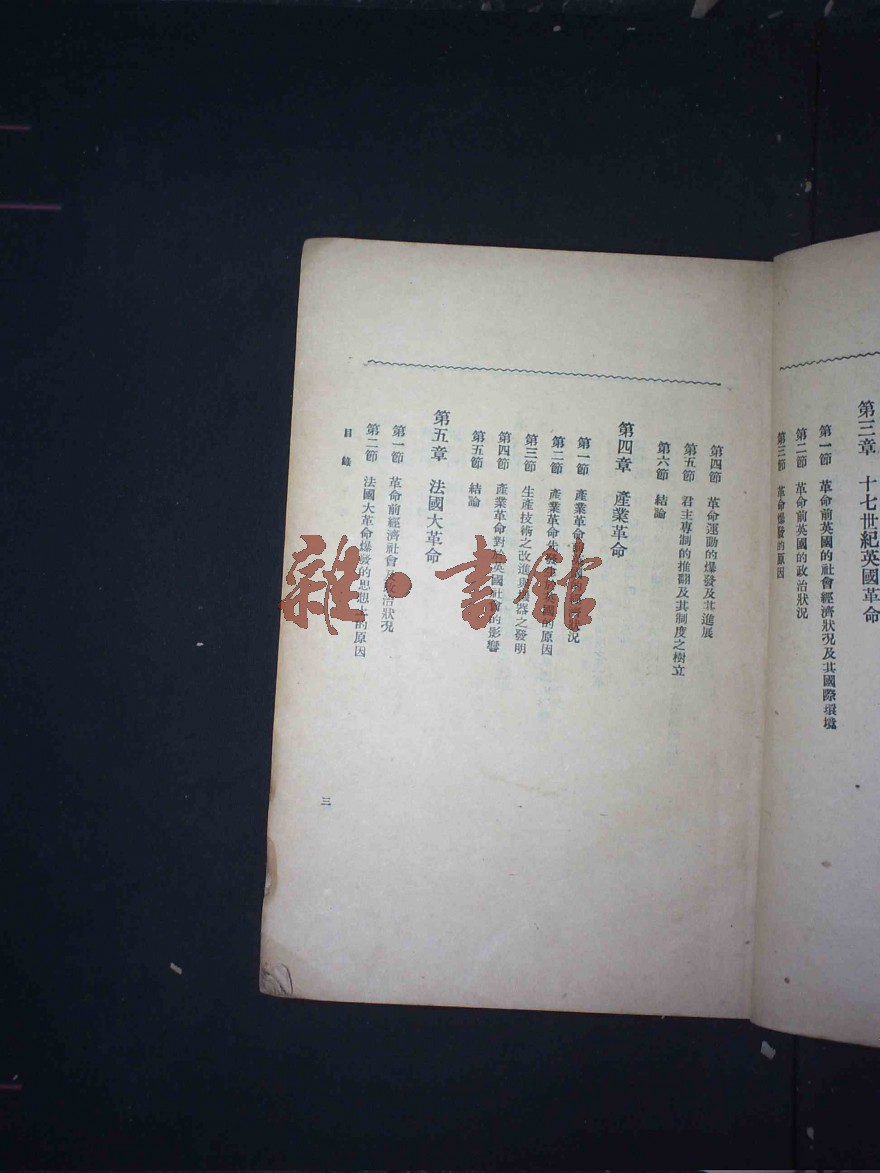 第三章　十七世紀英國革命
第一節　革命前英國的社會經濟狀況及其國際環境
第二節　革命前英國的政治狀況
第三節　革命爆發的原因
第四節　革命運動的爆發及其進展
第五節　君主專制的推翻及其制度之樹立
第六節　結論
第四章　產業革命
第一節　產業革命 狀況
第二節　產業革命先發 國的原因
第三節　生產技術之改進與機器之發明
第四節　產業革命對於英國社會的影響
第五節　結論
第五章　法國大革命
第一節　革命前經濟社會及政治狀況
第二節　法國大革命爆發的思想上的原因
目錄
三
雜·書館